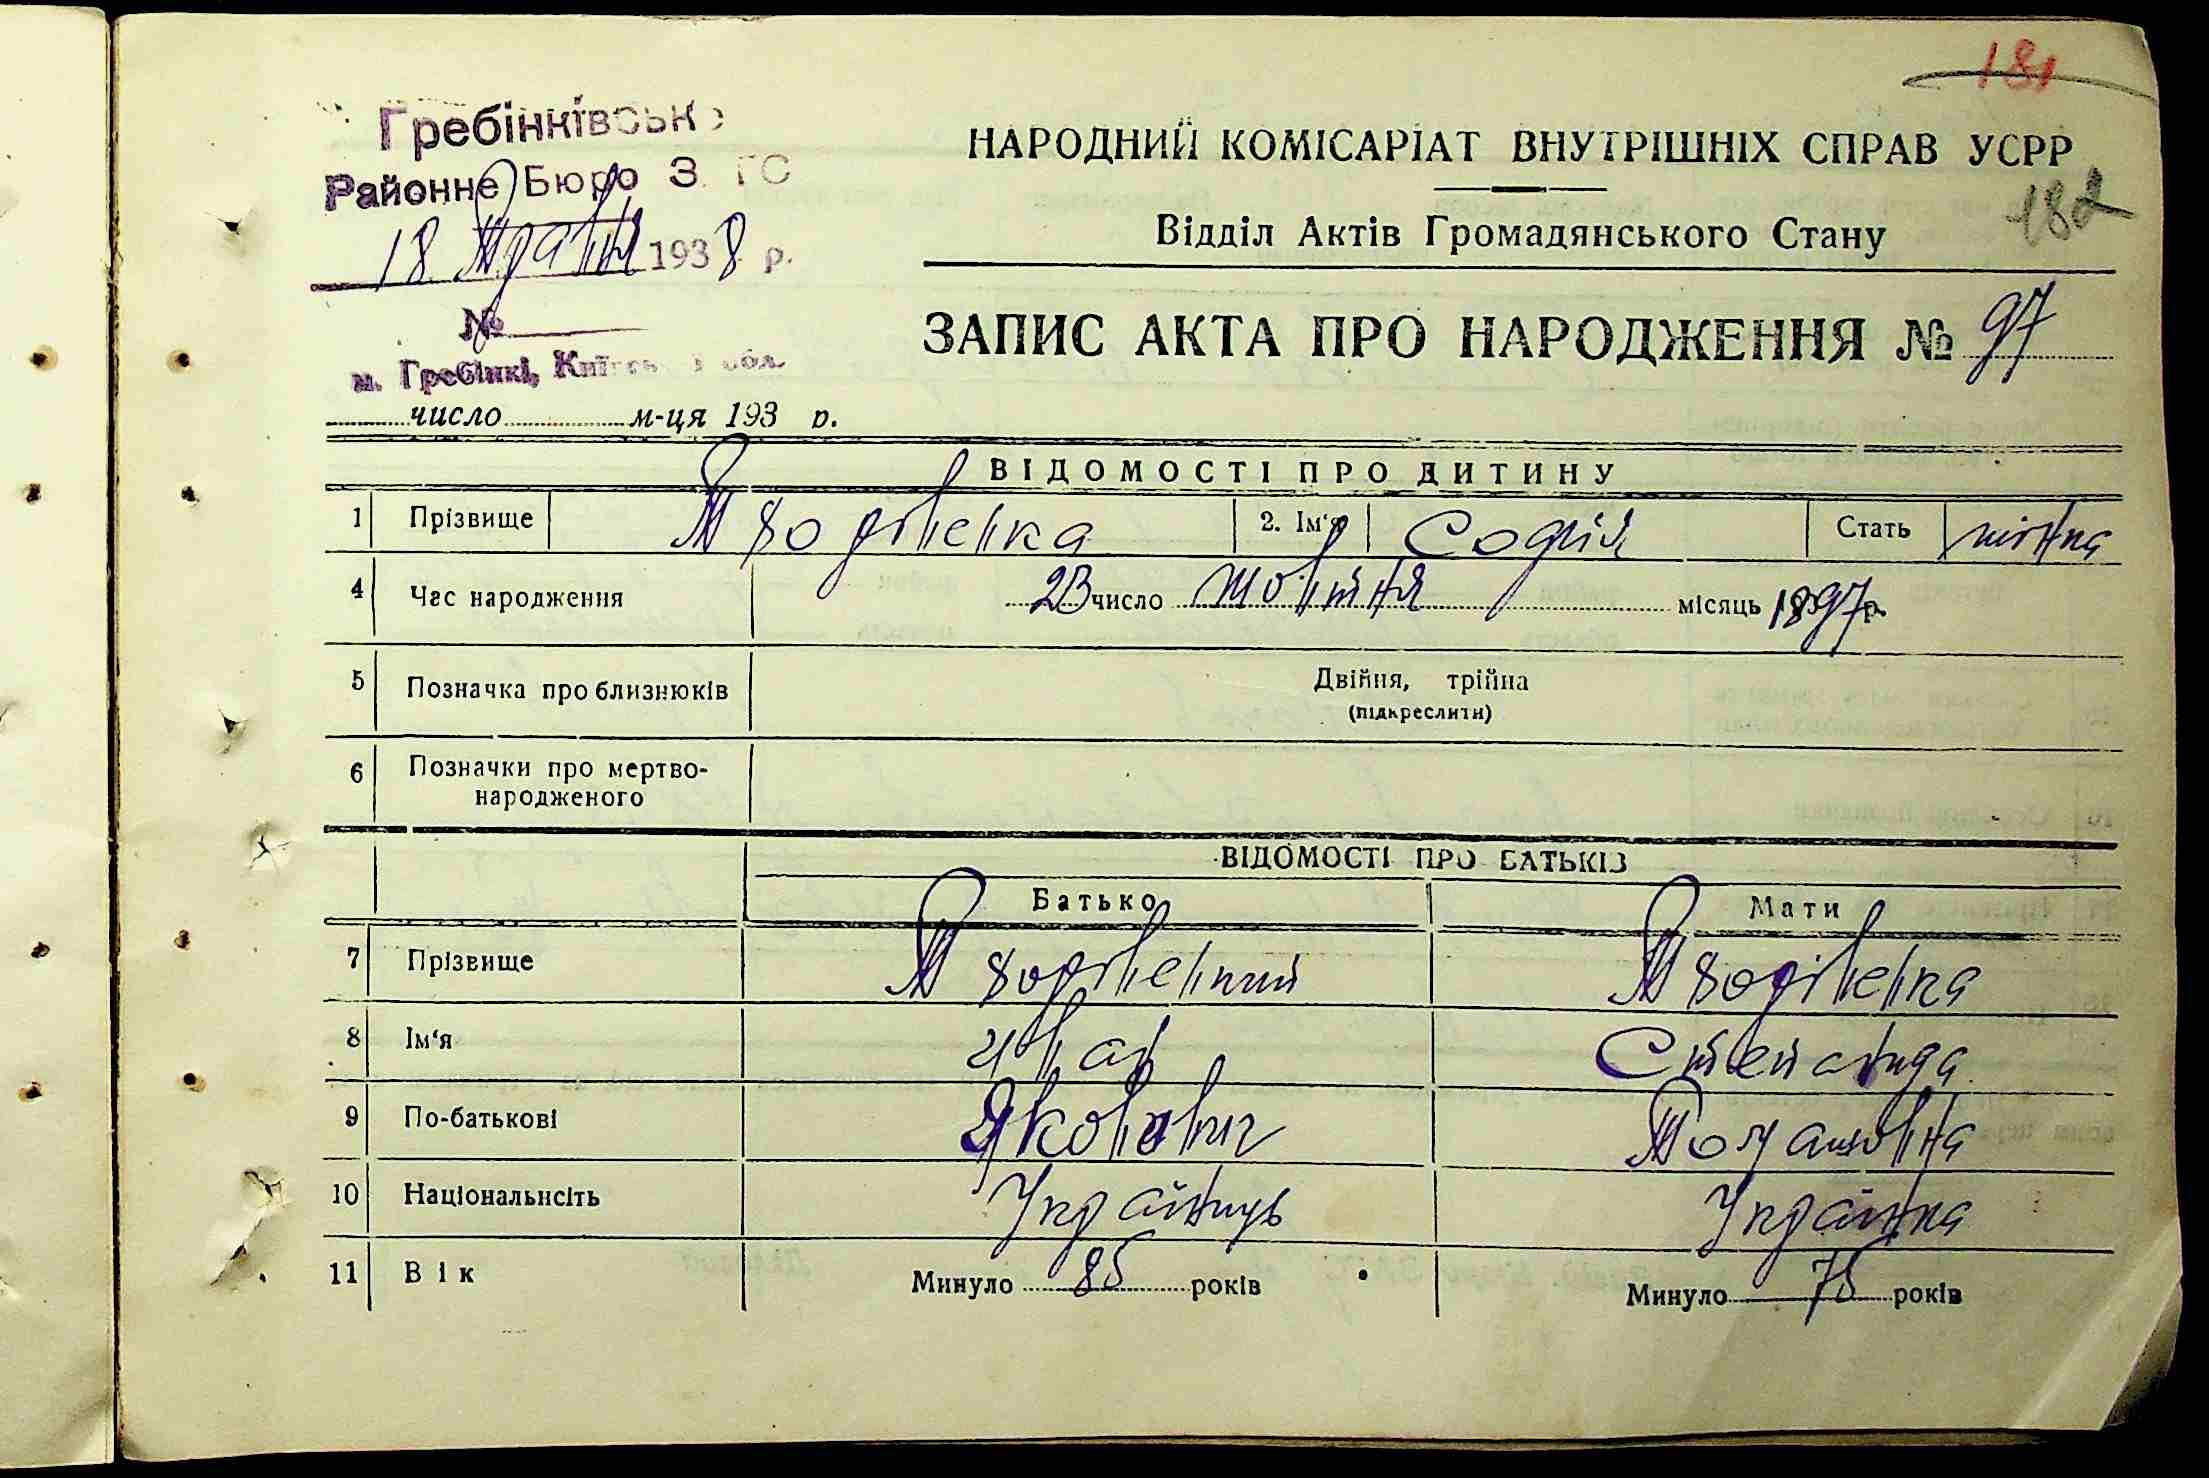 181
Гребінківськ
Районне Бюро З ГС
18 травня 1938 р.
№
м. Гребінкі, Київськ обл.
число м-ця 193 р.
НАРОДНИЙ КОМІСАРІАТ ВНУТРІШНІХ СПРАВ УСРР
182
Відділ Актів Громадянського Стану
ЗАПИС АКТА ПРО НАРОДЖЕННЯ № 97
ВІДОМОСТІ ПРО ДИТИНУ
1 Прізвище 2. Ім'я Софія Стать жінка
4 Час народження 23 число жовтня місяць 1897 р.
5 Позначка про близнюків Двійня, трійна
(підкреслити)
6 Позначки про мертво-
народженого
ВІДОМОСТІ ПРО БАТЬКІВ
Батько Мати
7 Прізвище
8 Ім'я Іван Степанида
9 По-батькові Якович
10 Національнсіть Українець Українка
11 Вік Минуло 85 років Минуло 75 років